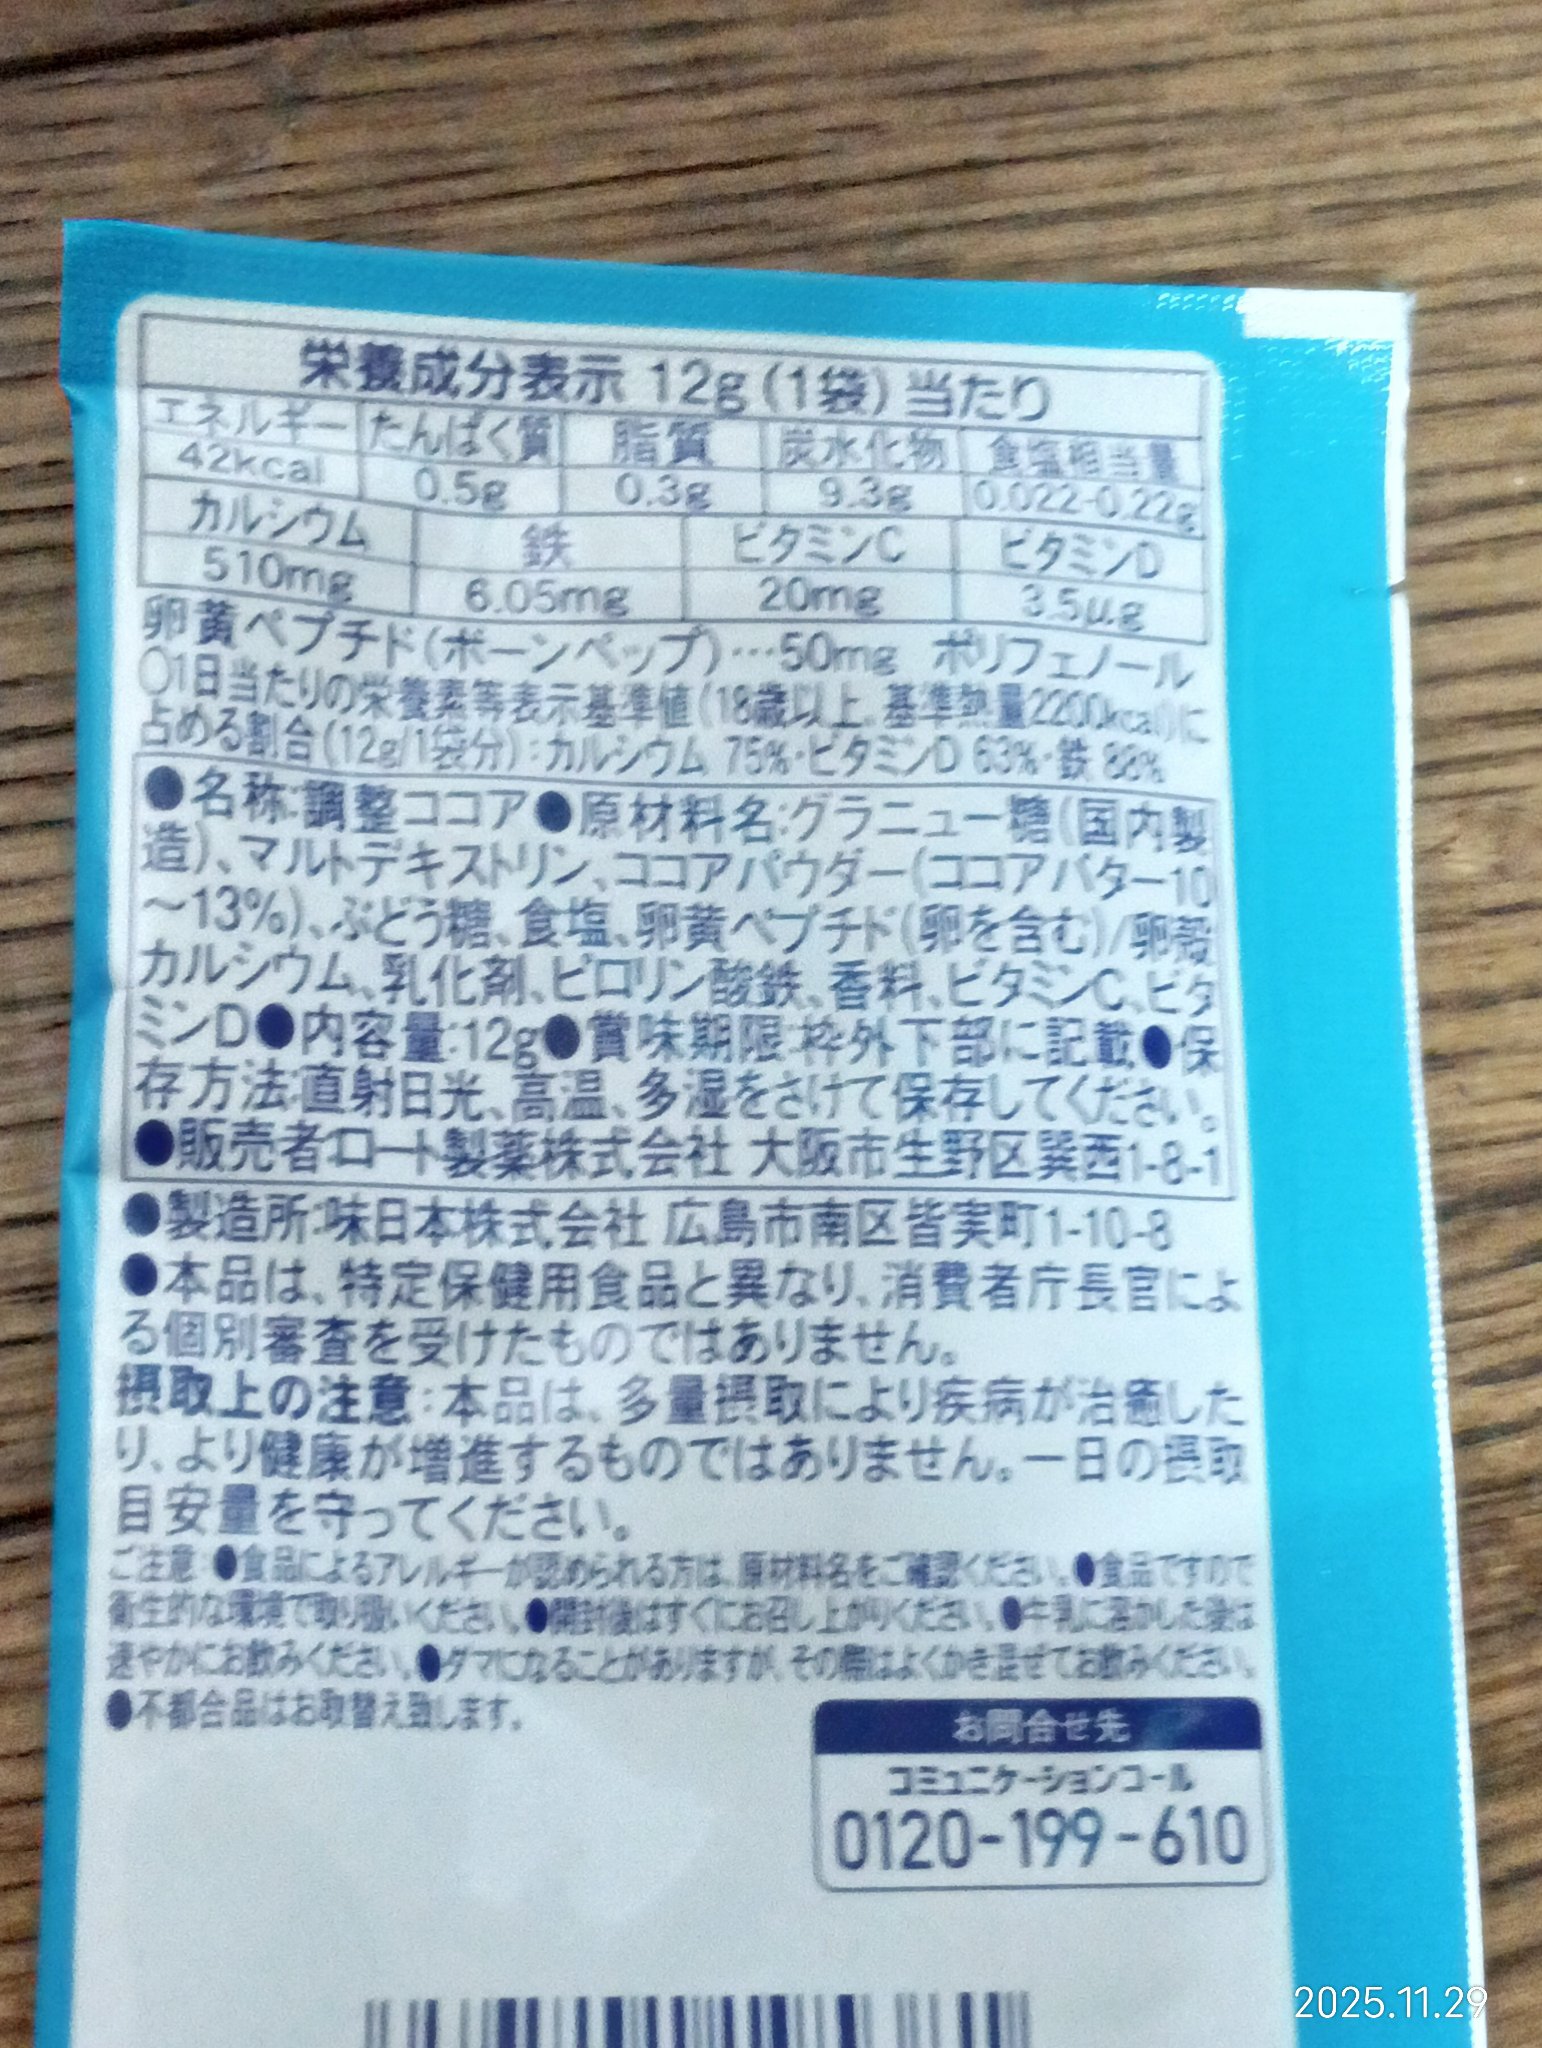 栄養成分表示 12g(1袋)当たり
エネルギー たんぱく質 脂質 炭水化物 食塩相当量
42kcal 0.5g 0.3g 9.3g 0.022-0.22g
カルシウム 鉄 ビタミンC ビタミンD
510mg 6.05mg 20mg 3.5μg
卵黄ペプチド(ボーンペップ)…50mg ポリフェノール
○1日当たりの栄養素等表示基準値(18歳以上、基準熱量2200kcal)に
占める割合(12g/1袋分):カルシウム 75%・ビタミンD 63%・鉄 88%
●名称:調整ココア●原材料名:グラニュー糖(国内製
造)、マルトデキストリン、ココアパウダー(ココアバター10
～13%)、ぶどう糖、食塩、卵黄ペプチド(卵を含む)/卵殻
カルシウム、乳化剤、ピロリン酸鉄、香料、ビタミンC、ビタ
ミンD●内容量:12g●賞味期限:枠外下部に記載●保
存方法:直射日光、高温、多湿をさけて保存してください。
●販売者:ロート製薬株式会社 大阪市生野区巽西1-8-1
●製造所:味日本株式会社 広島市南区皆実町1-10-8
●本品は、特定保健用食品と異なり、消費者庁長官によ
る個別審査を受けたものではありません。
摂取上の注意:本品は、多量摂取により疾病が治癒した
り、より健康が増進するものではありません。一日の摂取
目安量を守ってください。
ご注意:●食品によるアレルギーが認められる方は、原材料名をご確認ください。●食品ですので
衛生的な環境で取り扱いください。●開封後はすぐにお召し上がりください。●牛乳に溶かした後は
速やかにお飲みください。●ダマになることがありますが、その際はよくかき混ぜてお飲みください。
●不都合品はお取替え致します。
お問合せ先
コミュニケーションコール
0120-199-610
2025.11.29